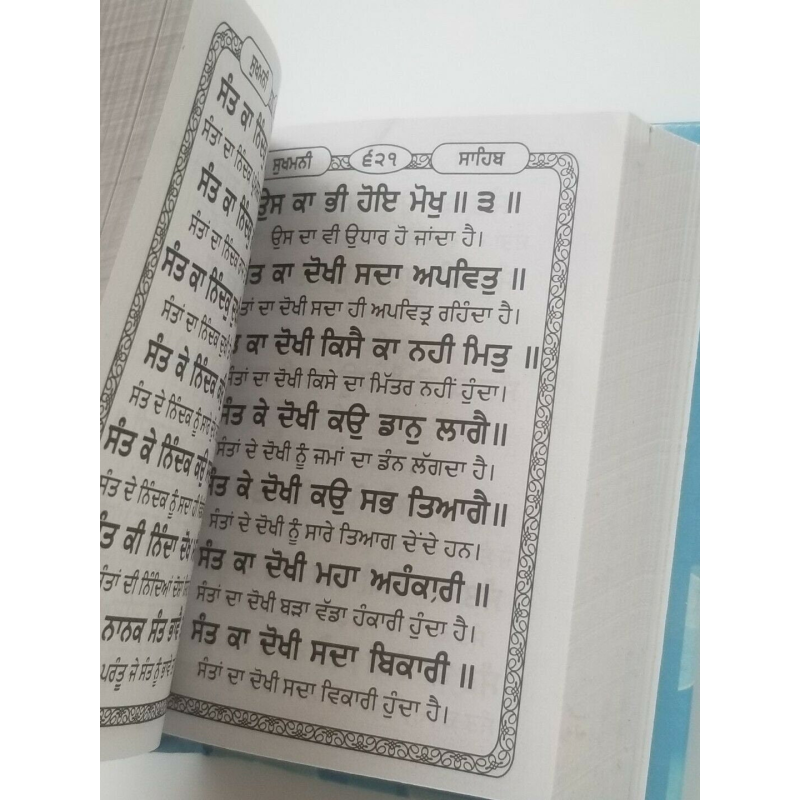 ਸੁਖਮਨੀ
ਸੰਤ ਕਾ
ਸੰਤਾਂ ਦਾ ਨਿੰਦਕ
ਸੰਤ ਕਾ
ਸੰਤਾਂ ਦਾ ਨਿੰਦਕ
ਸੰਤ ਕਾ ਨਿੰਦਕੁ
ਸੰਤਾਂ ਦਾ ਨਿੰਦਕ
ਸੰਤ ਕੇ ਨਿੰਦਕ
ਸੰਤ ਦੇ ਨਿੰਦਕ ਨੂੰ ਸਾਰੇ
ਸੰਤ ਕੇ ਨਿੰਦਕ ਕਉ
ਸੰਤ ਦੇ ਨਿੰਦਕ ਨੂੰ ਸਦਾ ਹੀ
ਸੰਤ ਕੀ ਨਿੰਦਾ
ਸੰਤਾਂ ਦੀ ਨਿੰਦਿਆਂ
ਨਾਨਕ ਸੰਤ ਭਾਵੈ
ਪਰੰਤੂ ਜੇ ਸੰਤ ਨੂੰ ਭਾਵੇ
ਸੁਖਮਨੀ ੬੨੧ ਸਾਹਿਬ
ਉਸ ਕਾ ਭੀ ਹੋਇ ਮੋਖੁ ॥ ੩ ॥
ਉਸ ਦਾ ਵੀ ਉਧਾਰ ਹੋ ਜਾਂਦਾ ਹੈ।
ਸੰਤ ਕਾ ਦੋਖੀ ਸਦਾ ਅਪਵਿਤੁ ॥
ਸੰਤਾਂ ਦਾ ਦੋਖੀ ਸਦਾ ਹੀ ਅਪਵਿਤ੍ਰ ਰਹਿੰਦਾ ਹੈ।
ਕਾ ਦੋਖੀ ਕਿਸੈ ਕਾ ਨਹੀ ਮਿਤੁ ॥
ਸੰਤਾਂ ਦਾ ਦੋਖੀ ਕਿਸੇ ਦਾ ਮਿੱਤਰ ਨਹੀਂ ਹੁੰਦਾ।
ਸੰਤ ਕੇ ਦੋਖੀ ਕਉ ਡਾਨੁ ਲਾਗੈ॥
ਸੰਤਾਂ ਦੇ ਦੋਖੀ ਨੂੰ ਜਮਾਂ ਦਾ ਡੰਨ ਲੱਗਦਾ ਹੈ।
ਸੰਤ ਕੇ ਦੋਖੀ ਕਉ ਸਭ ਤਿਆਗੈ॥
ਸੰਤਾਂ ਦੇ ਦੋਖੀ ਨੂੰ ਸਾਰੇ ਤਿਆਗ ਦੇਂਦੇ ਹਨ।
ਸੰਤ ਕਾ ਦੋਖੀ ਮਹਾ ਅਹੰਕਾਰੀ ॥
ਸੰਤਾਂ ਦਾ ਦੋਖੀ ਬੜਾ ਵੱਡਾ ਹੰਕਾਰੀ ਹੁੰਦਾ ਹੈ।
ਸੰਤ ਕਾ ਦੋਖੀ ਸਦਾ ਬਿਕਾਰੀ ॥
ਸੰਤਾਂ ਦਾ ਦੋਖੀ ਸਦਾ ਵਿਕਾਰੀ ਹੁੰਦਾ ਹੈ।